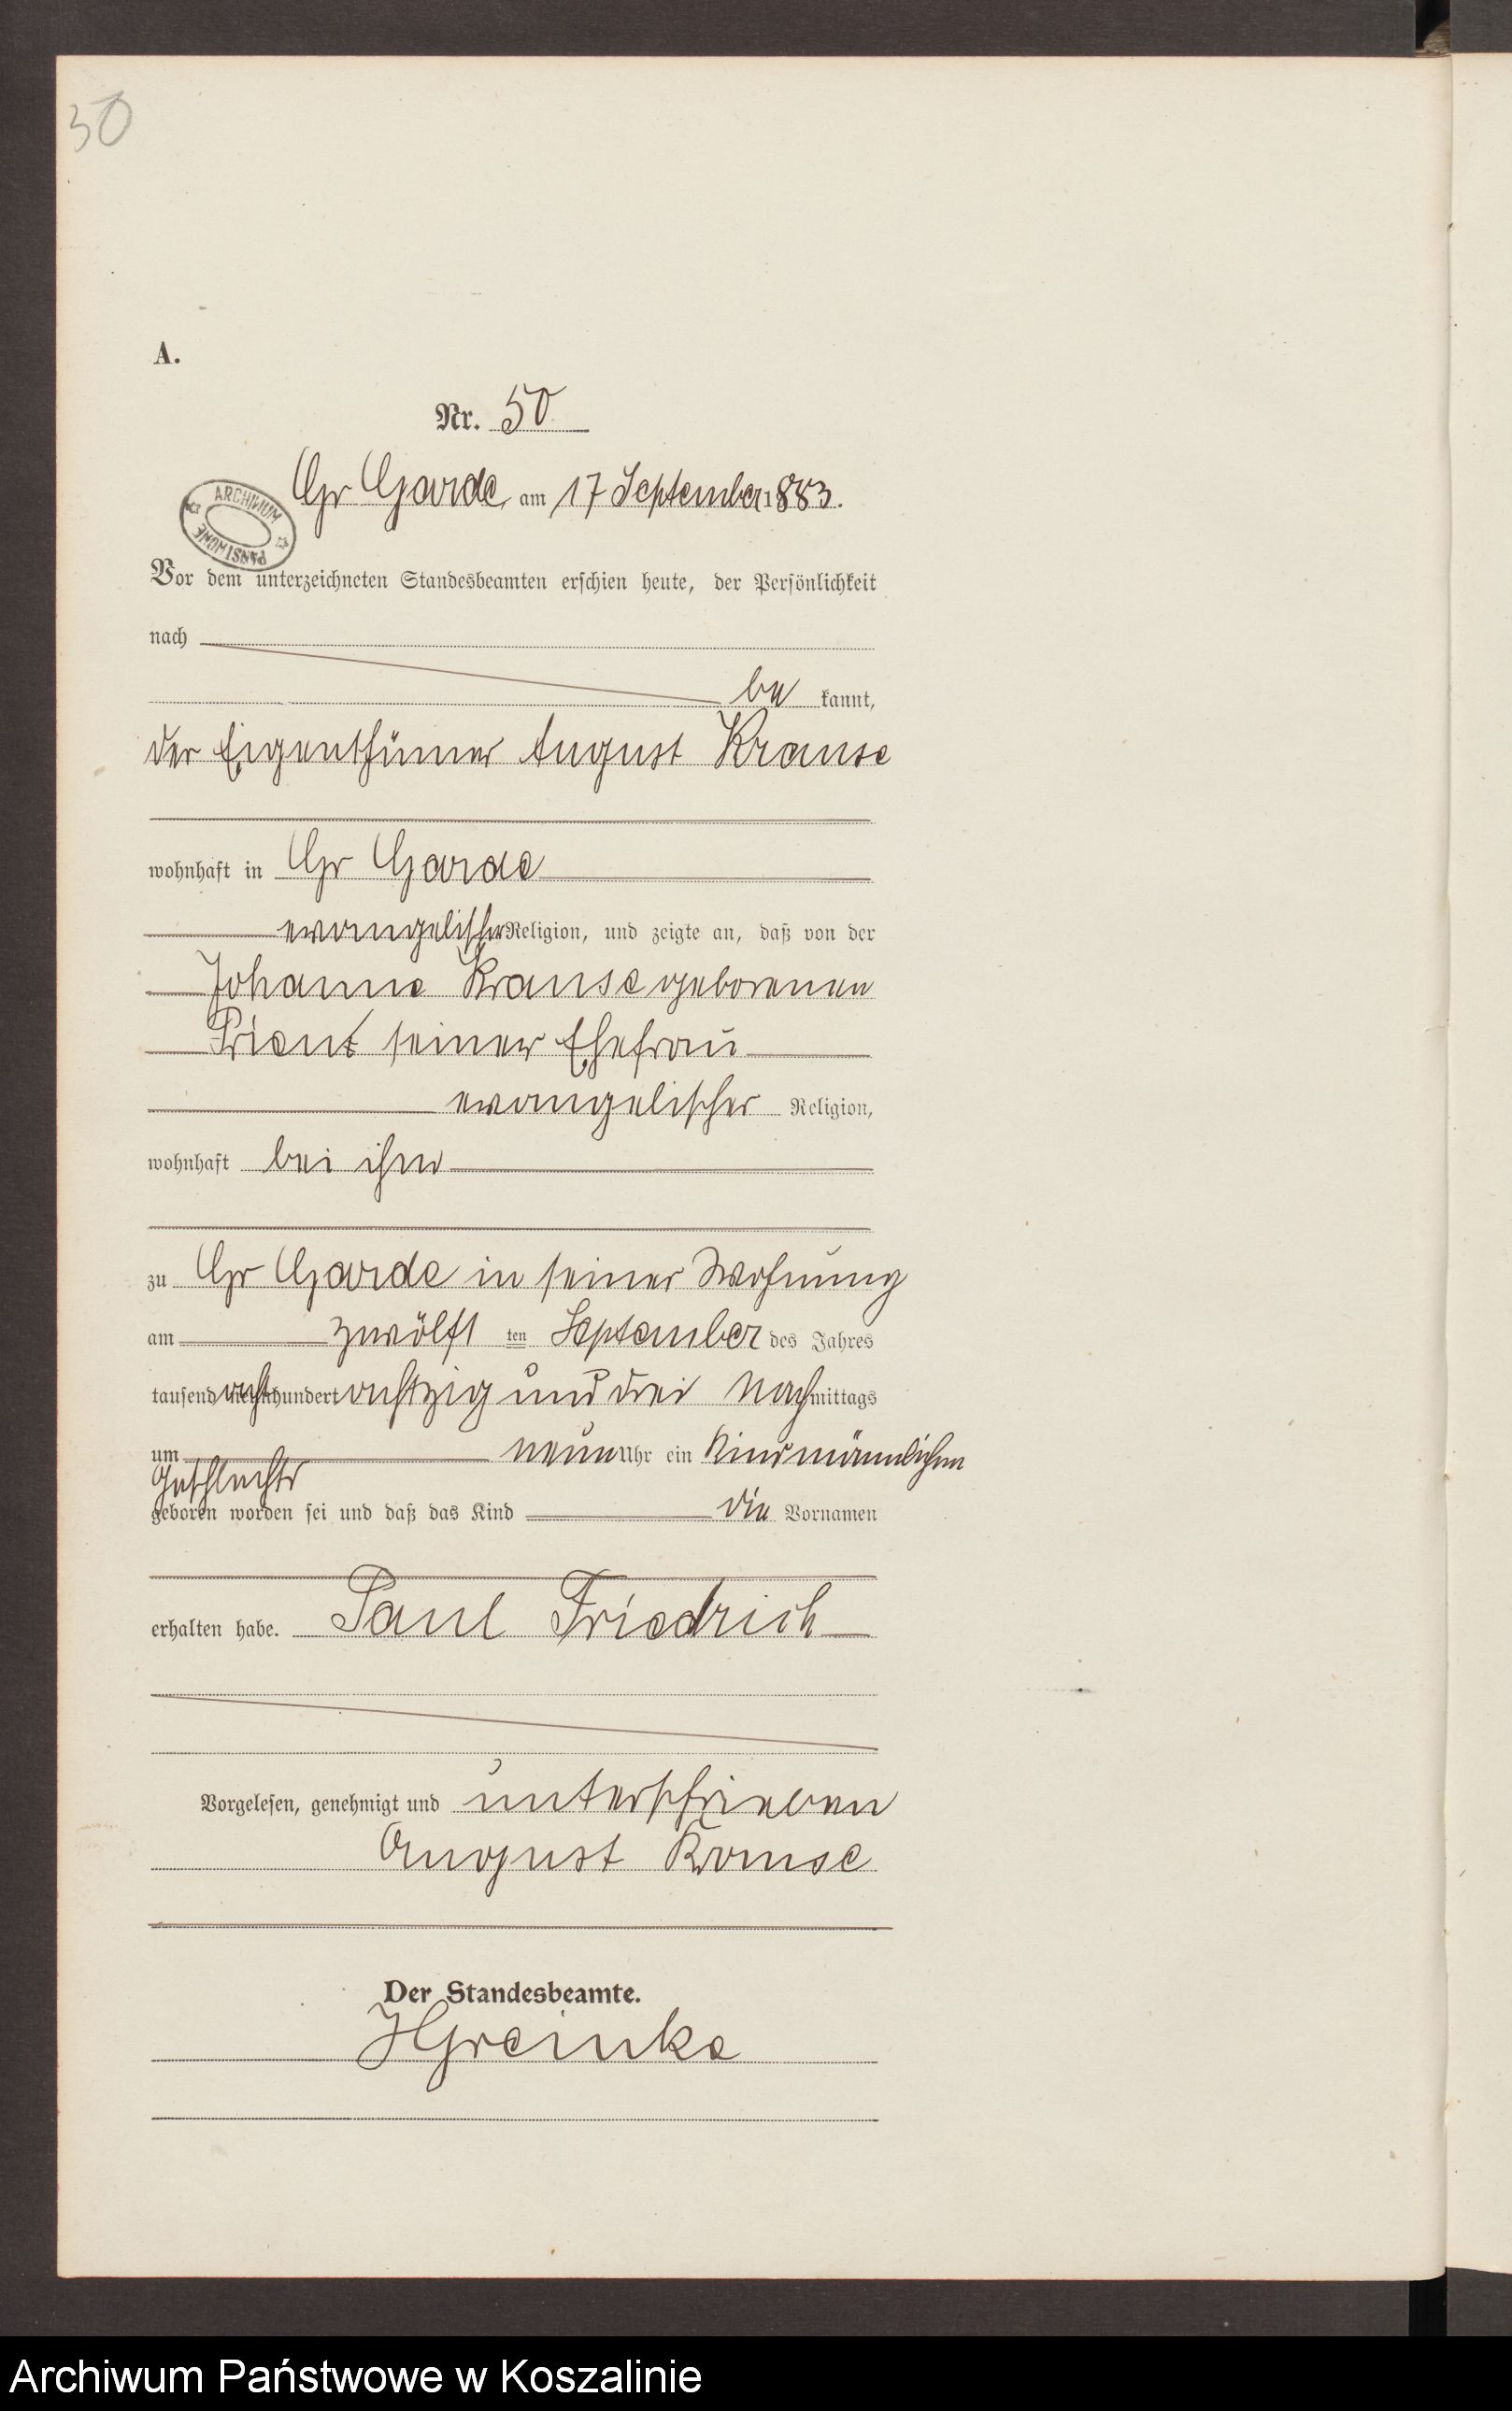 50
A.
Nr. 50
Gr Garde, am 17 September 1883.
ARCHIWUM PAŃSTWOWE
Vor dem unterzeichneten Standesbeamten erschien heute, der Persönlichkeit
nach
be kannt,
der Eigenthümer August Krause
wohnhaft in Gr Garde
evangelischer Religion, und zeigte an, daß von der
Johanne Krause geborenen
seiner Ehefrau
evangelischer Religion,
wohnhaft bei ihm
zu Gr Garde in seiner Wohnung
am zwölft ten September des Jahres
tausend acht hundert achtzig und drei Nach mittags
um neun Uhr ein Kind männlichen
Geschlechts
geboren worden sei und daß das Kind die Vornamen
erhalten habe. Paul Friedrich
Vorgelesen, genehmigt und unterschrieben
August Krause
Der Standesbeamte.
Archiwum Państwowe w Koszalinie